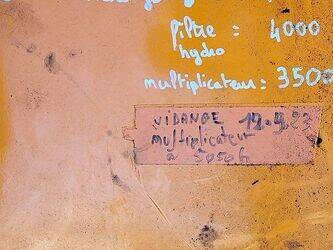 filtre = 4000
hydro
multiplicateur = 3500
VIDANGE 12.9.23
multiplicateur
à 5050h